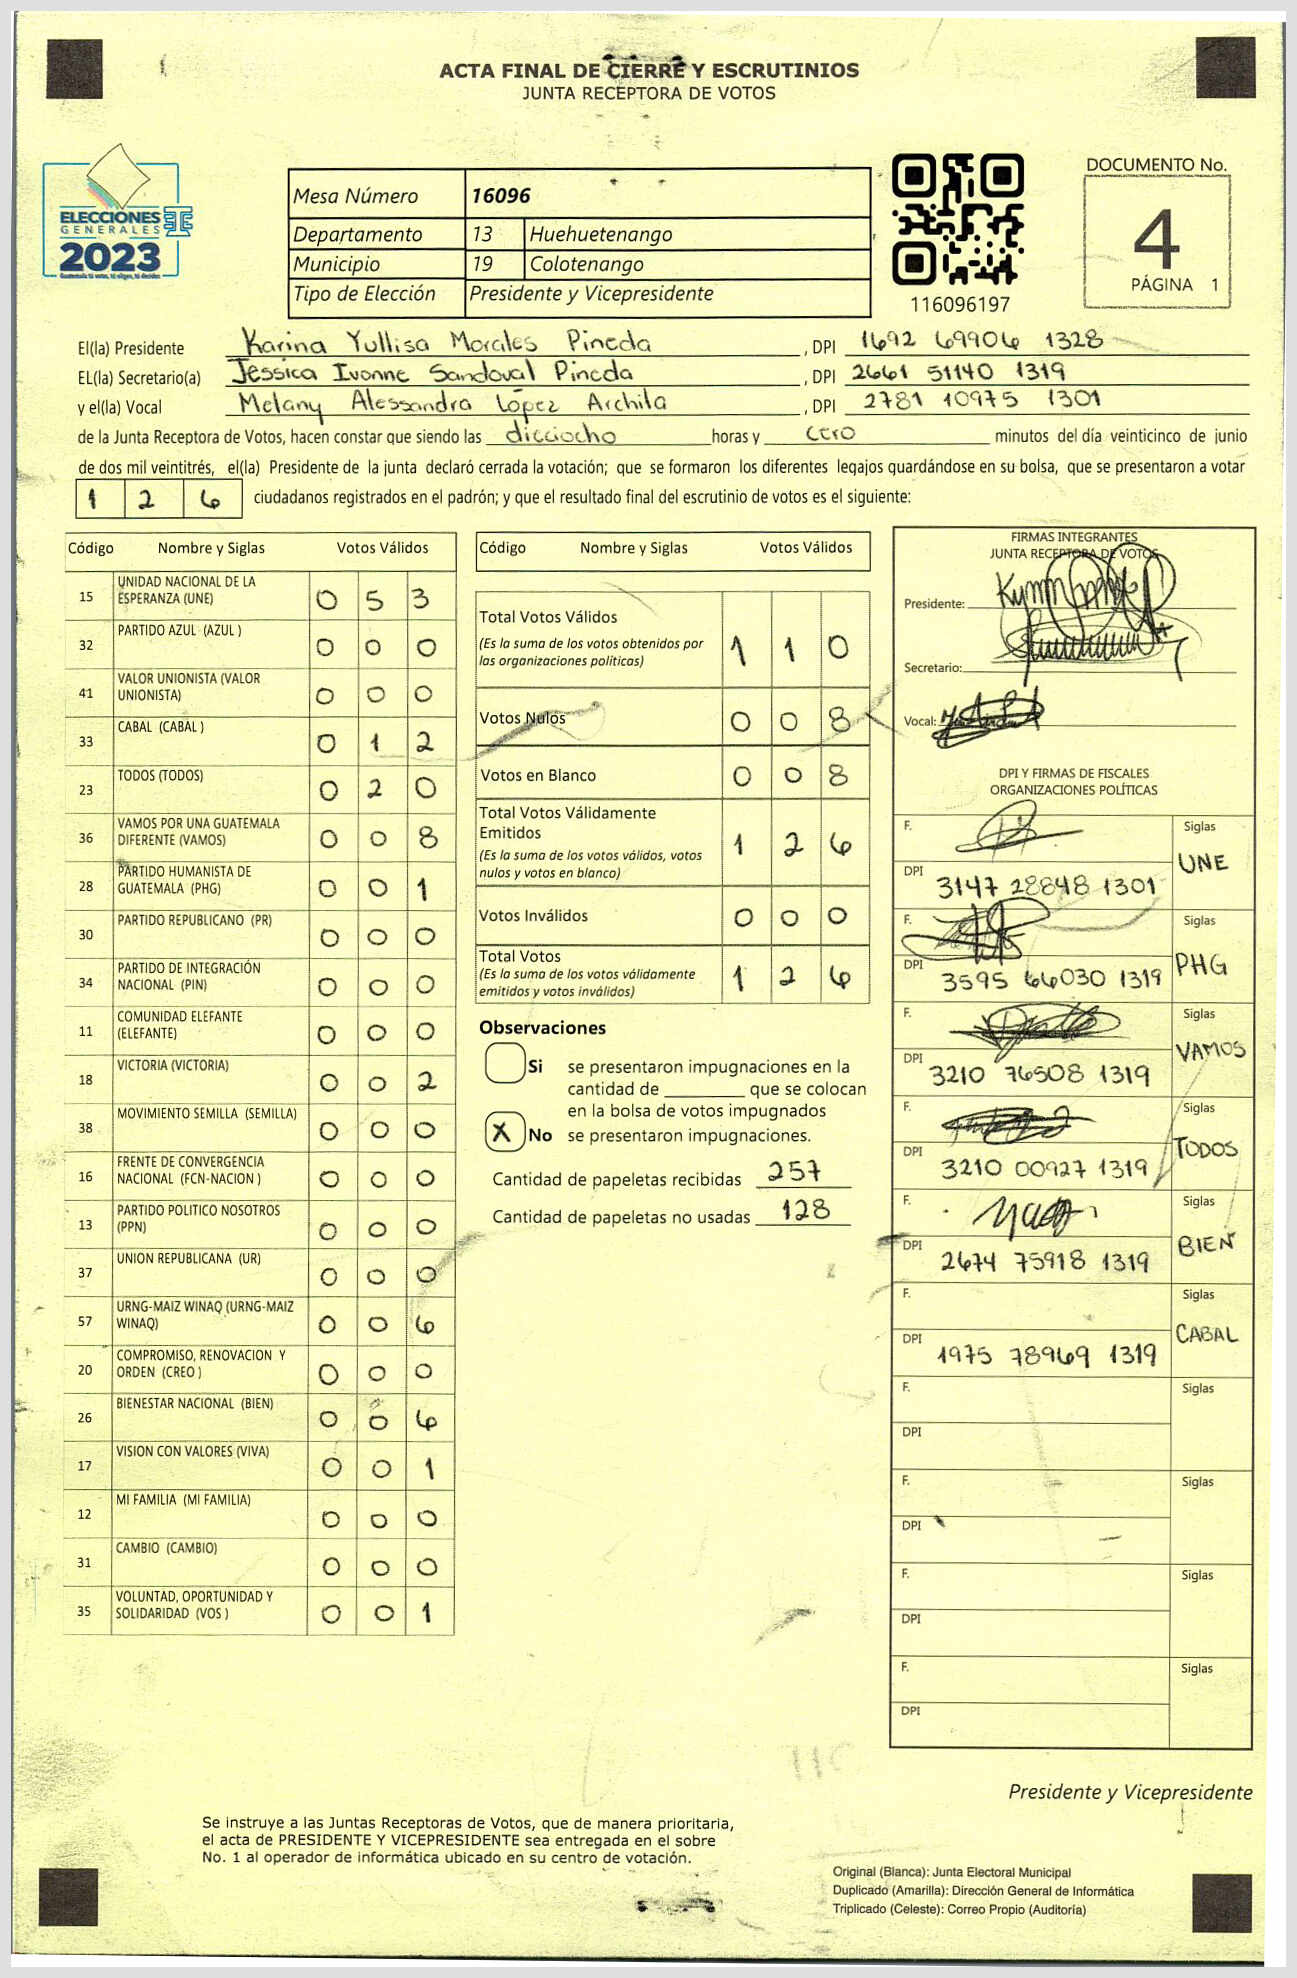 ACTA FINAL DE CIERRE Y ESCRUTINIOS
JUNTA RECEPTORA DE VOTOS
ELECCIONES
GENERALES
2023
Mesa Número 16096
Departamento 13 Huehuetenango
Municipio 19 Colotenango
Tipo de Elección Presidente y Vicepresidente
116096197
DOCUMENTO No.
4
PÁGINA 1
El(la) Presidente Karina Yullisa Morales Pineda , DPI 1692 69906 1328
EL(la) Secretario(a) Jessica Ivonne Sandoval Pineda , DPI 2661 51140 1319
y el(la) Vocal Melany Alessandra López Archila , DPI 2781 10975 1301
de la Junta Receptora de Votos, hacen constar que siendo las dieciocho horas y cero minutos del día veinticinco de junio
de dos mil veintitrés, el(la) Presidente de la junta declaró cerrada la votación; que se formaron los diferentes legajos quardándose en su bolsa, que se presentaron a votar
1 2 6 ciudadanos registrados en el padrón; y que el resultado final del escrutinio de votos es el siguiente:
Código Nombre y Siglas Votos Válidos
15 UNIDAD NACIONAL DE LA ESPERANZA (UNE) 0 5 3
32 PARTIDO AZUL (AZUL ) 0 0 0
41 VALOR UNIONISTA (VALOR UNIONISTA) 0 0 0
33 CABAL (CABAL ) 0 1 2
23 TODOS (TODOS) 0 2 0
36 VAMOS POR UNA GUATEMALA DIFERENTE (VAMOS) 0 0 8
28 PARTIDO HUMANISTA DE GUATEMALA (PHG) 0 0 1
30 PARTIDO REPUBLICANO (PR) 0 0 0
34 PARTIDO DE INTEGRACIÓN NACIONAL (PIN) 0 0 0
11 COMUNIDAD ELEFANTE (ELEFANTE) 0 0 0
18 VICTORIA (VICTORIA) 0 0 2
38 MOVIMIENTO SEMILLA (SEMILLA) 0 0 0
16 FRENTE DE CONVERGENCIA NACIONAL (FCN-NACION ) 0 0 0
13 PARTIDO POLITICO NOSOTROS (PPN) 0 0 0
37 UNION REPUBLICANA (UR) 0 0 0
57 URNG-MAIZ WINAQ (URNG-MAIZ WINAQ) 0 0 6
20 COMPROMISO, RENOVACION Y ORDEN (CREO ) 0 0 0
26 BIENESTAR NACIONAL (BIEN) 0 0 6
17 VISION CON VALORES (VIVA) 0 0 1
12 MI FAMILIA (MI FAMILIA) 0 0 0
31 CAMBIO (CAMBIO) 0 0 0
35 VOLUNTAD, OPORTUNIDAD Y SOLIDARIDAD (VOS ) 0 0 1
Código Nombre y Siglas Votos Válidos
Total Votos Válidos 1 1 0
(Es la suma de los votos obtenidos por
las organizaciones políticas)
Votos Nulos 0 0 8
Votos en Blanco 0 0 8
Total Votos Válidamente
Emitidos 1 2 6
(Es la suma de los votos válidos, votos
nulos y votos en blanco)
Votos Inválidos 0 0 0
Total Votos 1 2 6
(Es la suma de los votos válidamente
emitidos y votos inválidos)
Observaciones
Si se presentaron impugnaciones en la
cantidad de ________ que se colocan
en la bolsa de votos impugnados
X No se presentaron impugnaciones.
Cantidad de papeletas recibidas 257
Cantidad de papeletas no usadas 128
FIRMAS INTEGRANTES
JUNTA RECEPTORA DE VOTOS
Presidente:
Secretario:
Vocal:
DPI Y FIRMAS DE FISCALES
ORGANIZACIONES POLÍTICAS
F. Siglas UNE
DPI 3147 28848 1301
F. Siglas PHG
DPI 3595 66030 1319
F. Siglas VAMOS
DPI 3210 76508 1319
F. Siglas TODOS
DPI 3210 00927 1319
F. Siglas BIEN
DPI 2674 75918 1319
F. Siglas CABAL
DPI 1975 78969 1319
F. Siglas
DPI
F. Siglas
DPI
F. Siglas
DPI
F. Siglas
DPI
Presidente y Vicepresidente
Se instruye a las Juntas Receptoras de Votos, que de manera prioritaria,
el acta de PRESIDENTE Y VICEPRESIDENTE sea entregada en el sobre
No. 1 al operador de informática ubicado en su centro de votación.
Original (Blanca): Junta Electoral Municipal
Duplicado (Amarilla): Dirección General de Informática
Triplicado (Celeste): Correo Propio (Auditoría)